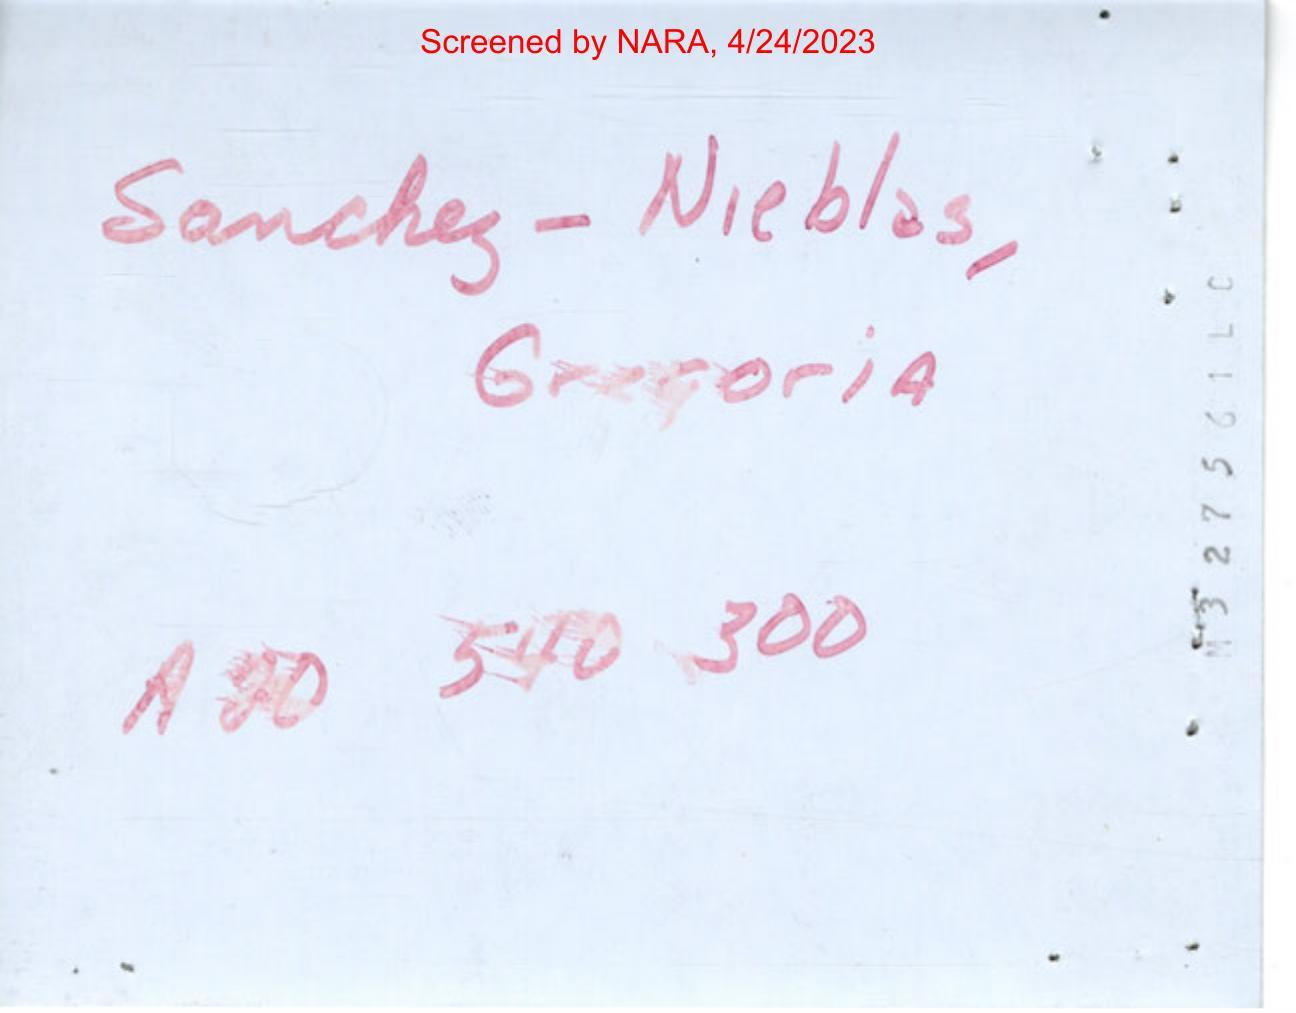 Screened by NARA, 4/24/2023
Sanchez - Nieblas,
Gregoria
A 20 540 300
M327561LC